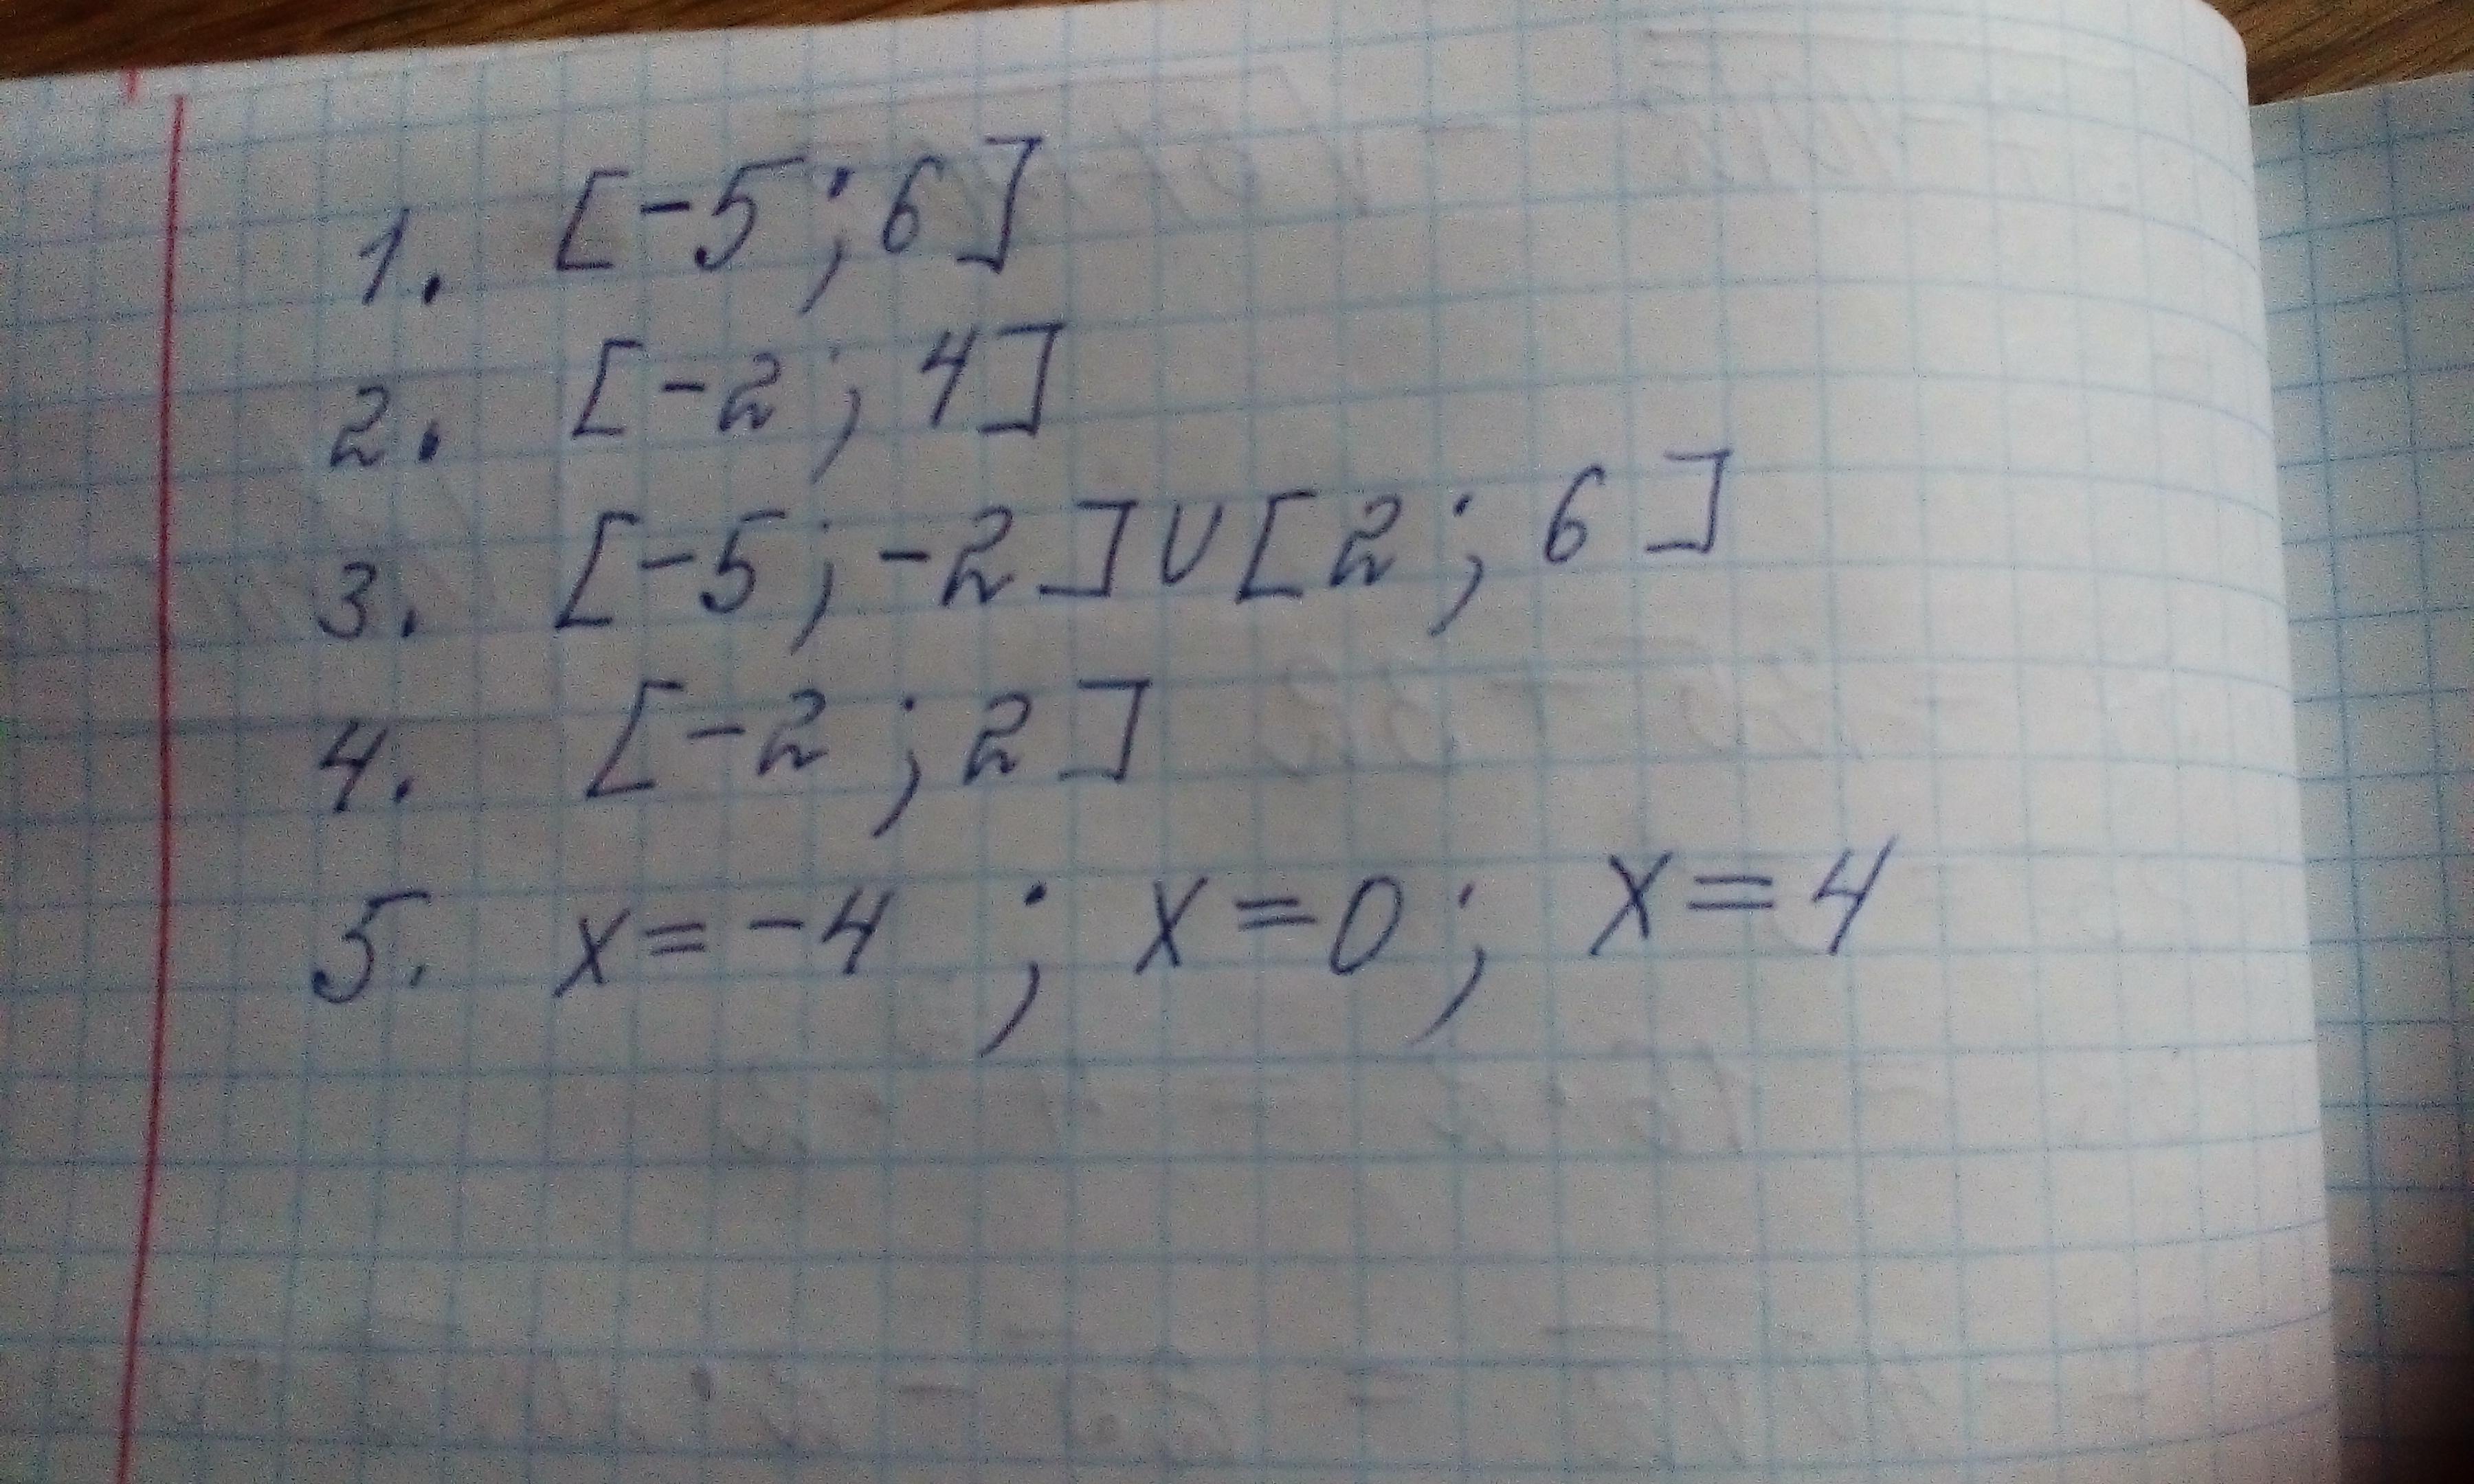 1. [-5;6]
2. [-2;4]
3. [-5;-2]∪[2;6]
4. [-2;2]
5. x=-4; x=0; x=4